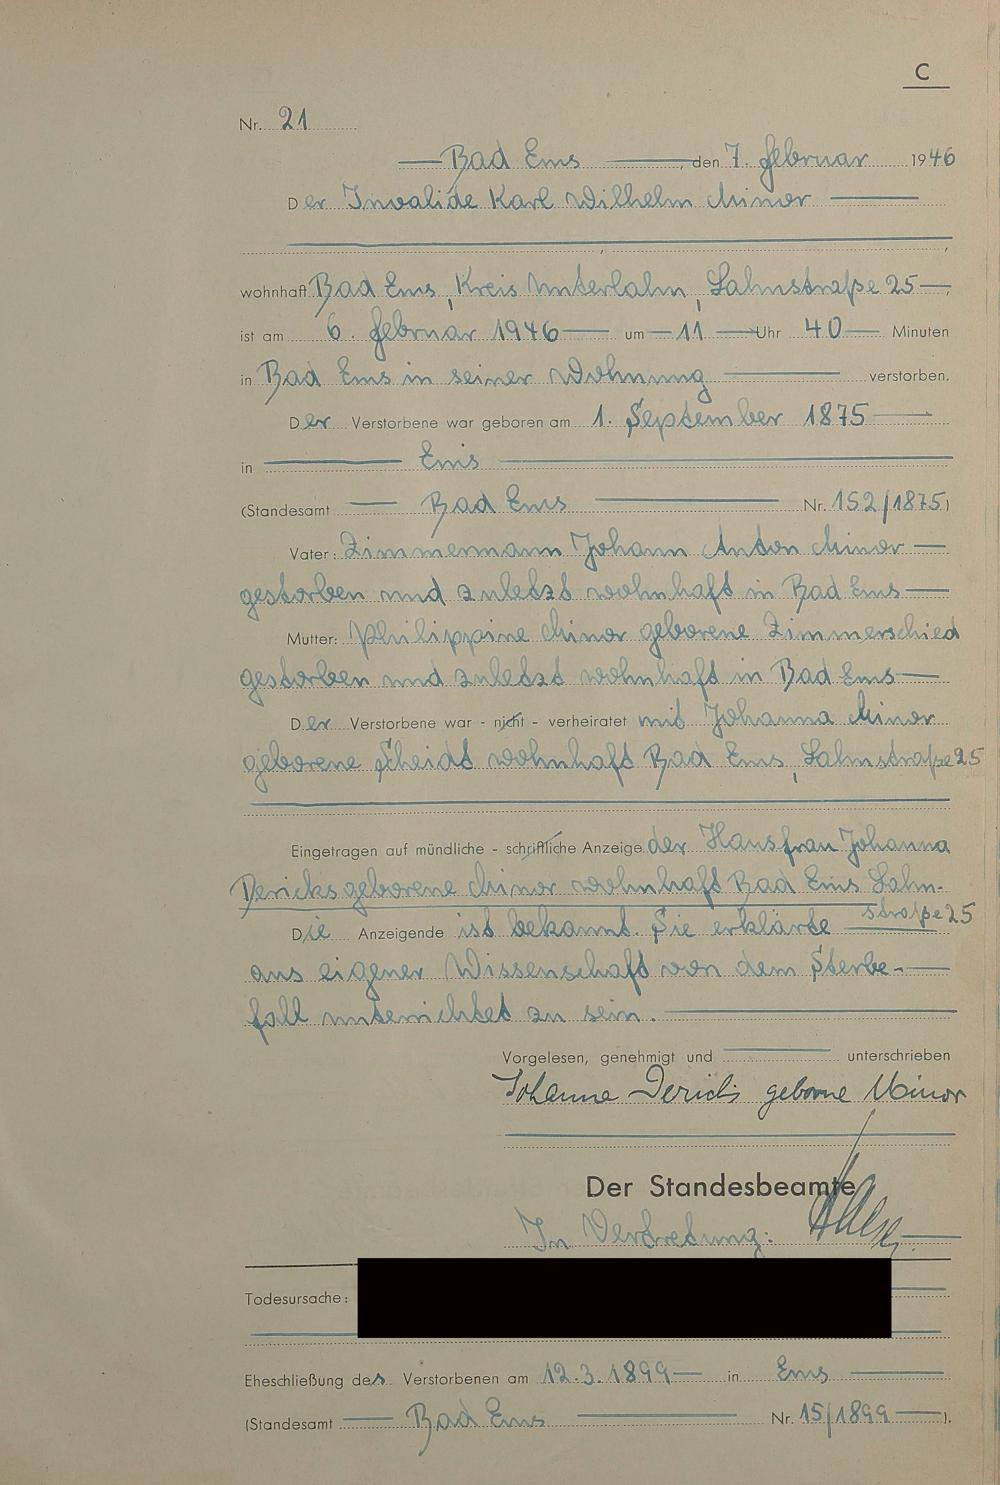 C
Nr. 21
Bad Ems, den 7. Februar 1946
Der Invalide Karl Wilhelm Minor
wohnhaft Bad Ems, Kreis Unterlahn, Lahnstraße 25
ist am 6. Februar 1946 um 11 Uhr 40 Minuten
in Bad Ems in seiner Wohnung verstorben.
Der Verstorbene war geboren am 1. September 1875
in Ems
(Standesamt Bad Ems Nr. 152/1875)
Vater: Zimmermann Johann Anton Minor
gestorben und zuletzt wohnhaft in Bad Ems
Mutter: Philippine Minor geborene Zimmerschied
gestorben und zuletzt wohnhaft in Bad Ems
Der Verstorbene war - nicht - verheiratet mit Johanna Minor
geborene Scheidt wohnhaft Bad Ems, Lahnstraße 25
Eingetragen auf mündliche - schriftliche Anzeige der Hausfrau Johanna
Dericks geborene Minor wohnhaft Bad Ems Lahn-
straße 25
Die Anzeigende ist bekannt. Sie erklärte
aus eigener Wissenschaft von dem Sterbe-
fall unterrichtet zu sein.
Vorgelesen, genehmigt und unterschrieben
Johanna Dericks geborne Minor
Der Standesbeamte
In Vertretung:
Todesursache:
Eheschließung des Verstorbenen am 12.3.1899 in Ems
(Standesamt Bad Ems Nr. 15/1899).